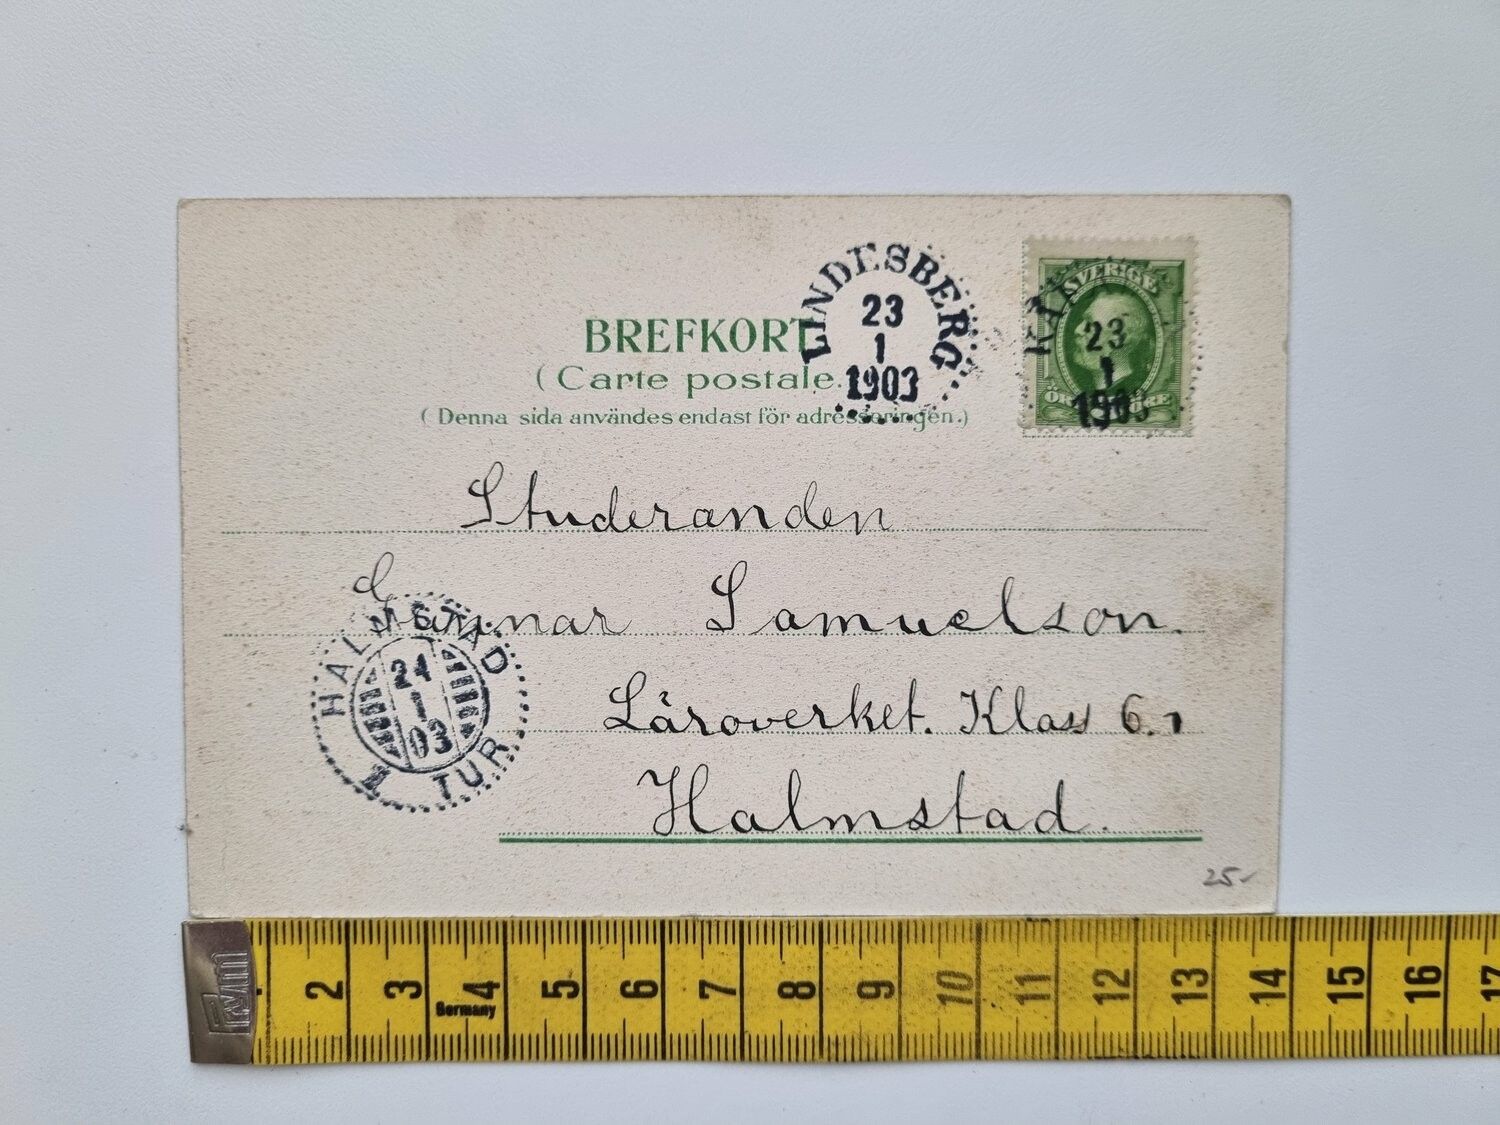 BREFKORT
(Carte postale.
(Denna sida användes endast för adresseringen.)
LINDESBERG
23
1
1903
SVERIGE
23
1
1903
ÖRE
Studeranden
Gunnar Samuelson.
Läroverket. Klass 6.1
Halmstad.
HALMSTAD
24
1
03
1 TUR
25-
2 3 4 5 6 7 8 9 10 11 12 13 14 15 16 17
Germany